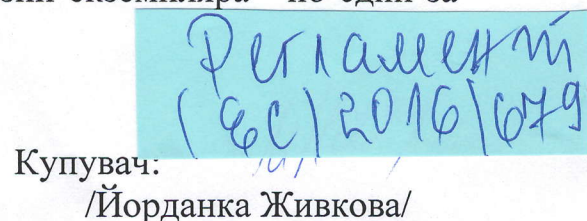 екземпляра по един за
Регламент
(ЕС) 2016/679
Купувач:
/Йорданка Живкова/